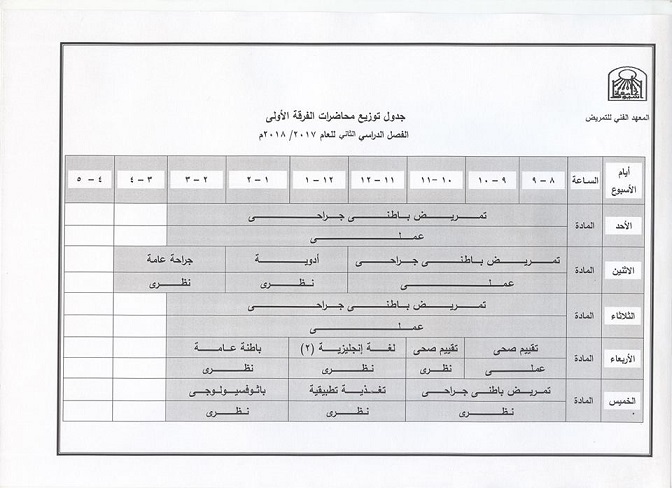 المعهد الفني للتمريض
جدول توزيع محاضرات الفرقة الأولى
الفصل الدراسي الثاني للعام ٢٠١٧/ ٢٠١٨م
أيام الأسبوع الساعة ٨ - ٩ ٩ - ١٠ ١٠ - ١١ ١١ - ١٢ ١٢ - ١ ١ - ٢ ٢ - ٣ ٣ - ٤ ٤ - ٥
الأحد المادة تمريض باطنى جراحى
عملى
الاثنين المادة تمريض باطنى جراحى أدوية جراحة عامة
عملى نظرى نظرى
الثلاثاء المادة تمريض باطنى جراحى
عملى
الأربعاء المادة تقييم صحى تقييم صحى لغة إنجليزية (٢) باطنة عامة
عملى نظرى نظرى نظرى
الخميس المادة تمريض باطنى جراحى تغذية تطبيقية باثوفسيولوجى
نظرى نظرى نظرى